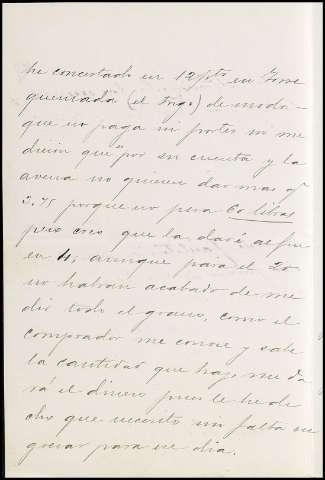 he concertado en 12 ptas en Torre
quemada (el trigo) de modo
que no paga ni portes ni me
dición que por su cuenta y la
avena no quieren dar mas q.
3.75 porque no pesa 60 libras
pero creo que la daré al fin
en 4, aunque para el 20
no habrán acabado de me
dir todo el grano, como el
comprador me conoce y sabe
la cantidad que hay me da
rá el dinero pues le he di
cho que necesito sin falta ne
gociar para ese dia.